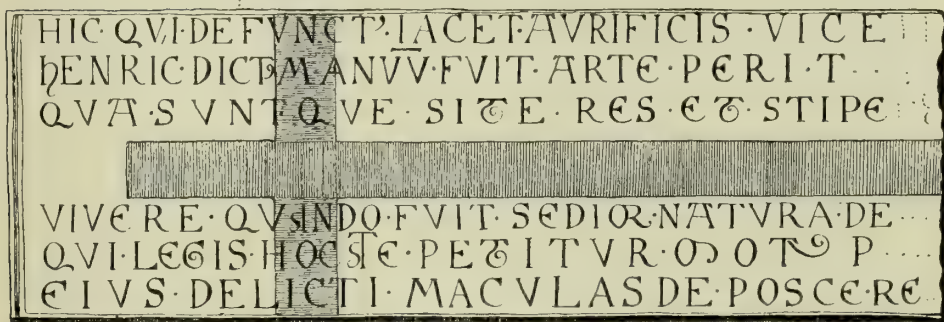 HIC·QVI·DEFVNCT᾽·IACET·AVRIFICIS·VICE
HENRIC·DICT᾽MANVV·FVIT·ARTE·PERI·T
QVA·SVNT·QVE·SITE·RES·ET·STIPE
VIVERE·QVSINDO·FVIT·SEDIOR·NATVRA·DE
QVI·LEGIS·HOC STE·PETITVR·MOT P
EIVS·DELICTI·MACVLAS DE·POSCE·RE